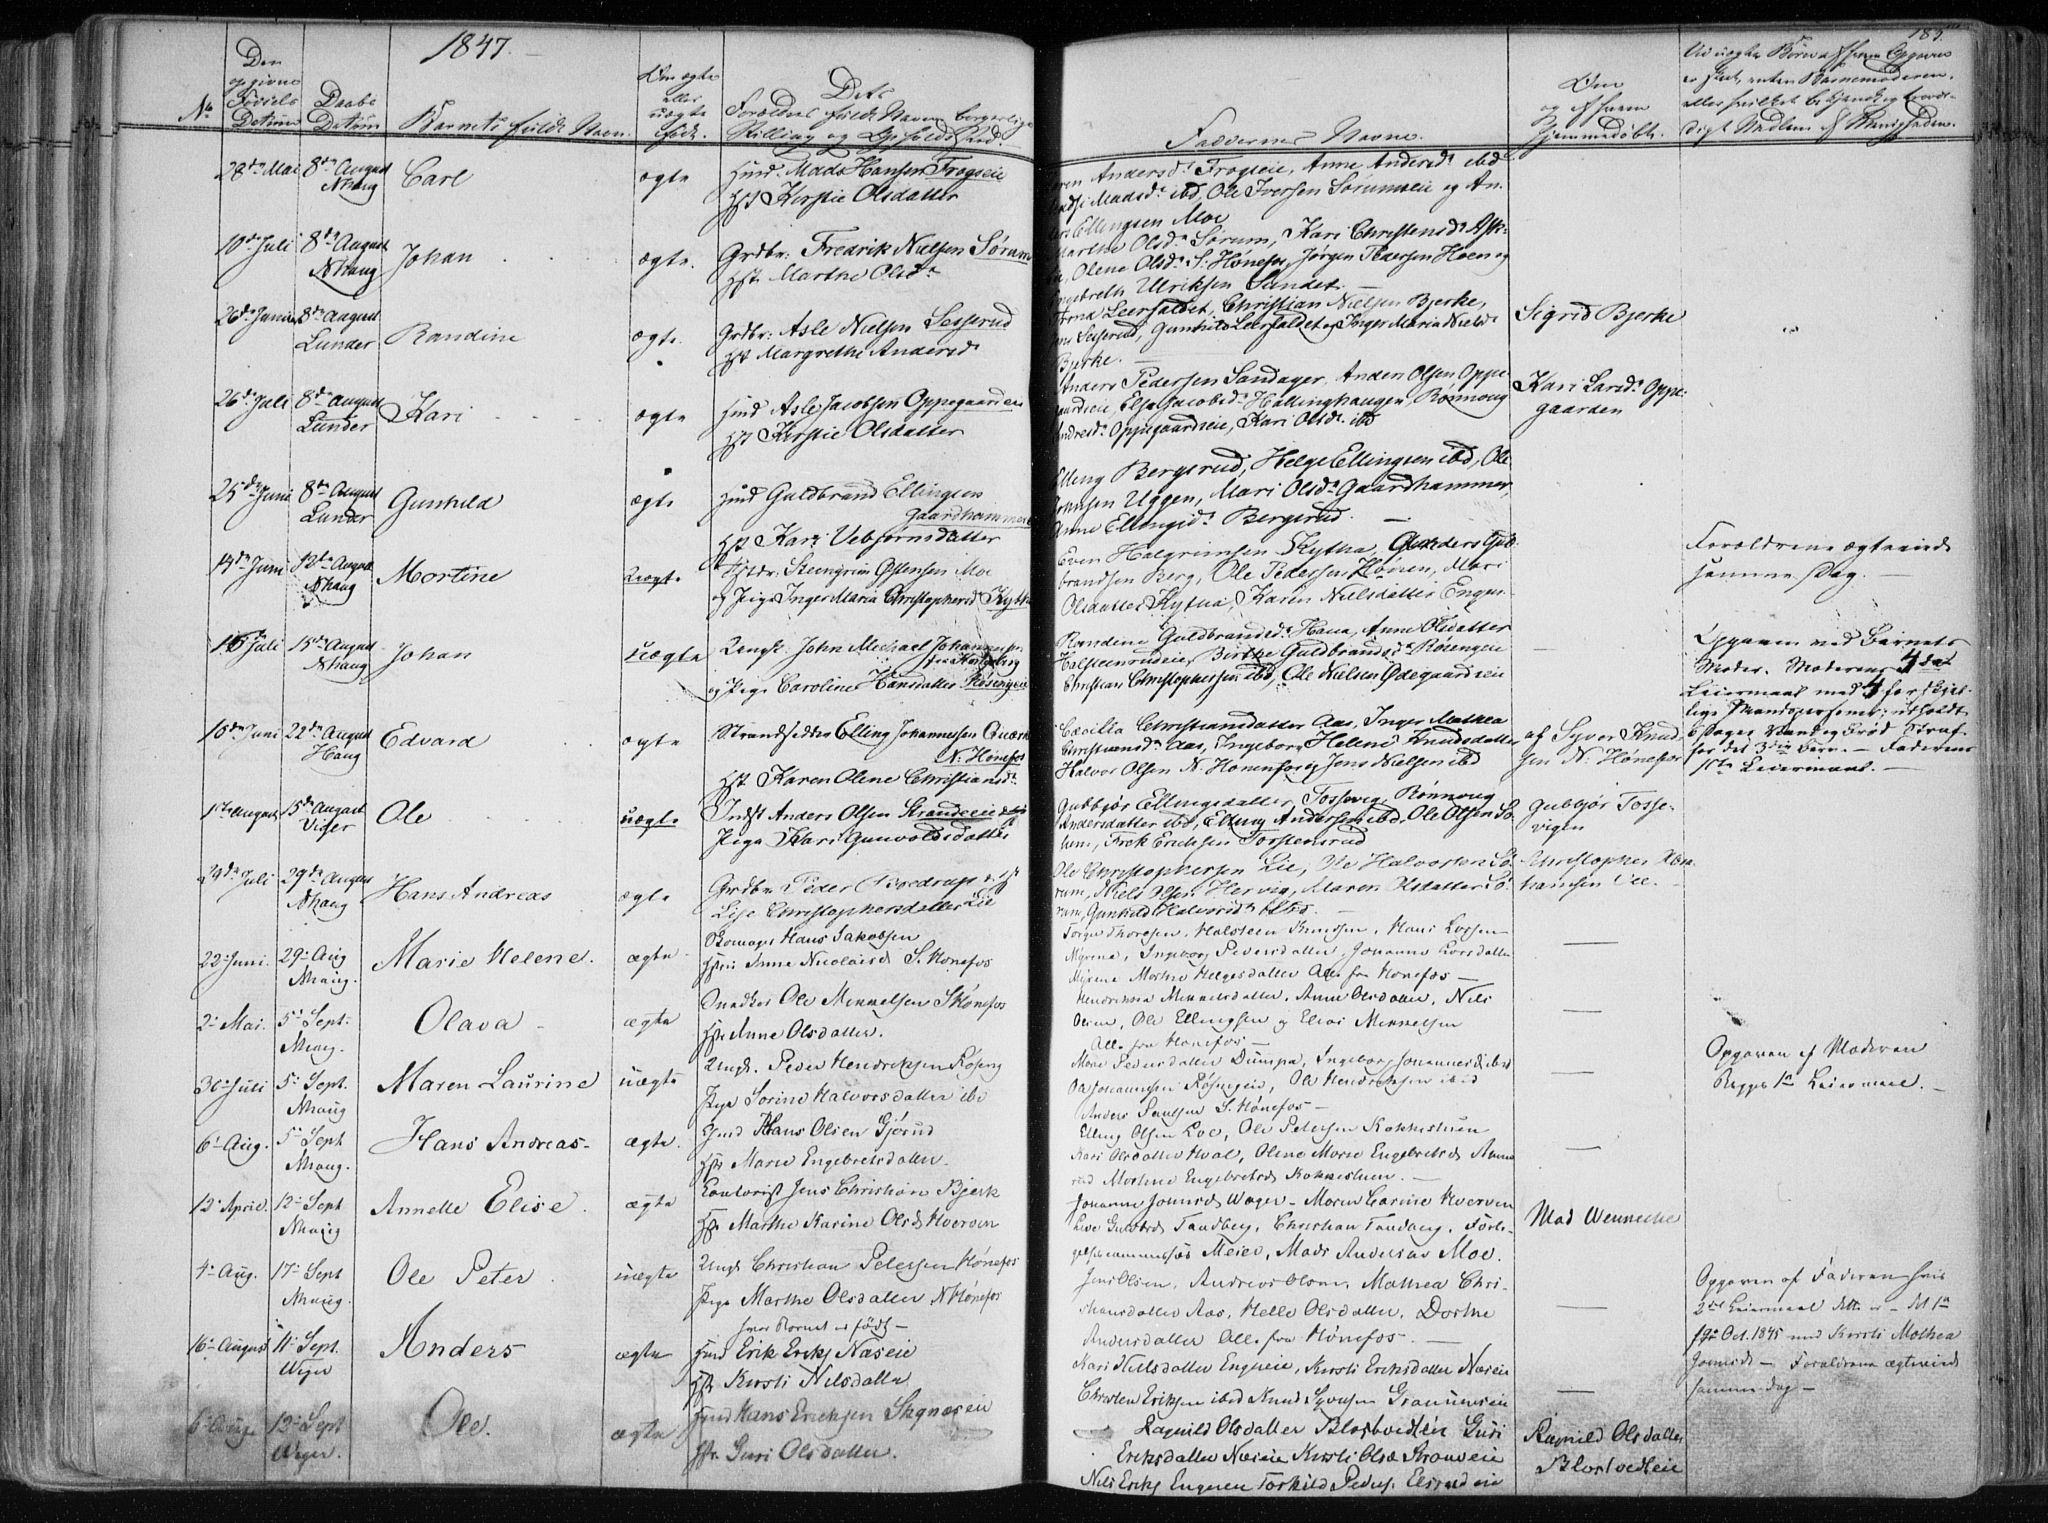 1847.
185.
No
Den opgivne Fødsels Datum
Daabs Datum
Barnets fulde Navn.
Om ægte eller uægte født.
Dets Forældres fulde Navne, borgerlige Stilling og Opholdssted.
Faddernes Navne.
Om og af hvem hjemmedøbt.
28de Mai
8de August Nhaug
Carl
ægte
Huusm. Mads Hansen Frogseie
Hst Kirstie Olsdatter
Andersd. Frogseie, Anne Andersd. ibd
Madsd. ibd, Ole Iversen Sørumseie og An-
Ellingsen Moe
10de Juli
8de August Nhaug
Johan
ægte.
Grdbr: Fredrik Nielsen Sørum
Hst. Marthe Olsd.
Marthe Olsd. Sørum, Kari Christensd.
Olene Olsd. S: Hønefos, Jørgen Pedersen Hoen og
Engebreth Ulriksen Sandet.
26de Juni
8de August Lunder
Randine
ægte.
Grdbr: Asle Nielsen Sesserud
Hst Margrethe Andersd.
Leerfaldet, Christian Nielsen Bjerke,
Sesserud, Gunhild Leerfaldet og Inger Maria Nielsd.
Bjerke.
Sigrid Bjerke
26de Juli
8de August Lunder
Kari
ægte
Huusm Asle Jacobsen Oppegaardseie
Hst Kirstie Olsdatter
Anders Pedersen Sandager, Anders Olsen Oppe-
gaardseie, Else Jacobsd. Hallinghaugen, Rønnoug
Andersd. Oppegaardseie, Kari Olsd. ibd
Kari Larsd. Oppe-
gaarden
25de Juni
8de August Lunder
Gunhild
ægte
Huusm Guldbrand Ellingsen
Gaardhammer
Hst Kari Vebjørnsdatter
Elling Bergsrud, Helge Ellingsen ibd, Ole
Uggen, Mari Olsd. Gaardhammer,
Anne Ellingsd. Bergsrud.
14de Juni
12te August Nhaug
Mortine
Uægte
Steengrim Østensen Moe
og Pige Inger Maria Christophersd. Kytha
Even Halgrimsen Kytha, Gunder Gul-
brandsen Berg, Ole Pedersen Hønen, Mari
Olsdatter Kytha, Karen Nielsdatter Enger.
Forældrene ægteviede
samme Dag.
15de August Nhaug
Johan
uægte
Ungk. John Michael Johannesen
og Pige Caroline Hansdatter Røsengeie
Randine Guldbrandsd. Haua, Anne Olsdatter
Halsteinrudeie, Birthe Guldbrandsd. Røsengeie
Christian Christophersen ibd, Ole Nielsen Ødegaardseie
Opgaven ved Barnets
Moder. Moderens 4de
Leiermaal med 4 forskjel-
lige Mandspersoner; udholdt
6 Dages Vand og Brød Straf
for det 3die Barn. — Faderens
1ste Leiermaal.
22de August Haug
Edvard
ægte
Strandsidder Elling Johannesen Qværn
N. Hønefos
Hst Karen Olene Christiansd.
Cæcilia Christiansdatter Aas, Inger Mathea
Christiansd. Aas, Ingeborg Helene Knudsdatter
Halvor Olsen N. Hønefos og Jens Nielsen ibd
af Syver Knud-
sen N. Hønefos
1ste August
15de August Viger
Ole
uægte
Indst Anders Olsen Strandeie og
Pige Kari Gunvoldsdatter
Gubbjør Ellingsdatter Tossevig, Rønnoug
Andersdatter ibd, Elling Andersen ibd, Ole Olsen
Erichsen Torstensrud
Gubbjør Tosse-
vigen
29de August Nhaug
Hans Andreas
ægte
Grdbr Peder Bordrup
Lise Christophersdatter Lie
Ole Christophersen Lie, Ole Halvorsen Sø-
rum, Niels Olsen Hervig, Maren Olsdatter Sø-
rum, Gunhild Halvorsd. ibd.
Christopher
22 Juni.
29 Aug Nhaug.
Marie Helene.
ægte
Bomager Hans Jakobsen
Anne Nicolaisd S. Hønefos
Torger Thoresen, Halsteen Knudsen, Hans Larsen
Myrene, Ingeborg Pedersdatter, Johanne Larsdatter
Myrene Marthe Helgesdatter Alle fra Hønefos —
2 Mai.
5 Sept. Nhaug.
Olava
ægte
Snedker Ole Mikkelsen S Hønefos
Hst Anne Olsdatter.
Hendrikka Mikkelsdatter, Anne Olsdatter, Nils
Olsen, Ole Ellingsen og Elias Mikkelsen
Alle fra Hønefos —
30 Juli
5 Sept. Nhaug
Maren Laurine
uægte
Ungk. Peder Hendriksen Røseng
Pige Sørine Halvorsdatter ibd
Mari Pedersdatter Dumpa, Ingeborg Johannesd ibid
Ole Johannesen Røsengeie, Ole Hendriksen ibid
Anders Paulsen S. Hønefos —
Opgaven af Moderen
Begges 1te Leiermaal.
6 Aug.
5 Sept Nhaug.
Hans Andreas
ægte.
Gjmd Hans Olsen Gjørud
Hst Maren Engebretsdatter.
Elling Olsen Loe, Ole Petersen Kokkestuen
Kari Olsdatter Hval, Oline Marie Engebretsd
Marthine Engebretsd Kokkestuen.
12 April.
12 Sept Nhaug
Annette Elise.
ægte
Kontorist Jens Christian Bjerk
Hst Marthe Karine Olsd Hverven
Johanne Jonsd Wager, Maren Carine Hverven
Lise Gulbrd Tandberg, Christian Tandberg,
Meier, Mads Andreas Moe.
Mad Wennecke
4 Aug.
17 Sept Nhaug.
Ole Peter
uægte
Ungk Christian Petersen Hønefos
Pige Marthe Olsdatter N Hønefos
hvor Barnet er født —
Jens Olsen, Andreas Olsen, Mathea Chri-
stiansdatter Aas, Helle Olsdatter, Dorthe
Andersdatter Alle fra Hønefos. —
Opgaven af Faderen hvis
2det Leiermaal dette er — det 1te
Oct. 1845 med Kirsti Mathea
Jonsd — Forældrene ægteviede
samme dag —
16 August
11 Sept. Wiger
Anders
ægte
Huusm Erik Eriks Næseie
Hst Kirsti Nilsdatter
Kari Nilsdatter Engereie, Kirsti Eriksdatter Næseie
Christen Eriksen ibid Knud Syversen
6 Aug
12 Sept Wiger.
Ole.
ægte
Huusm Hans Erichsen Skgnæseie
Hst. Guri Olsdatter.
Ragnild Olsdatter Guri
Eriksdatter Næseie Kirsti Olsd
Nils Eriks Engereie Torkild Peders.
Ragnild Olsdatter